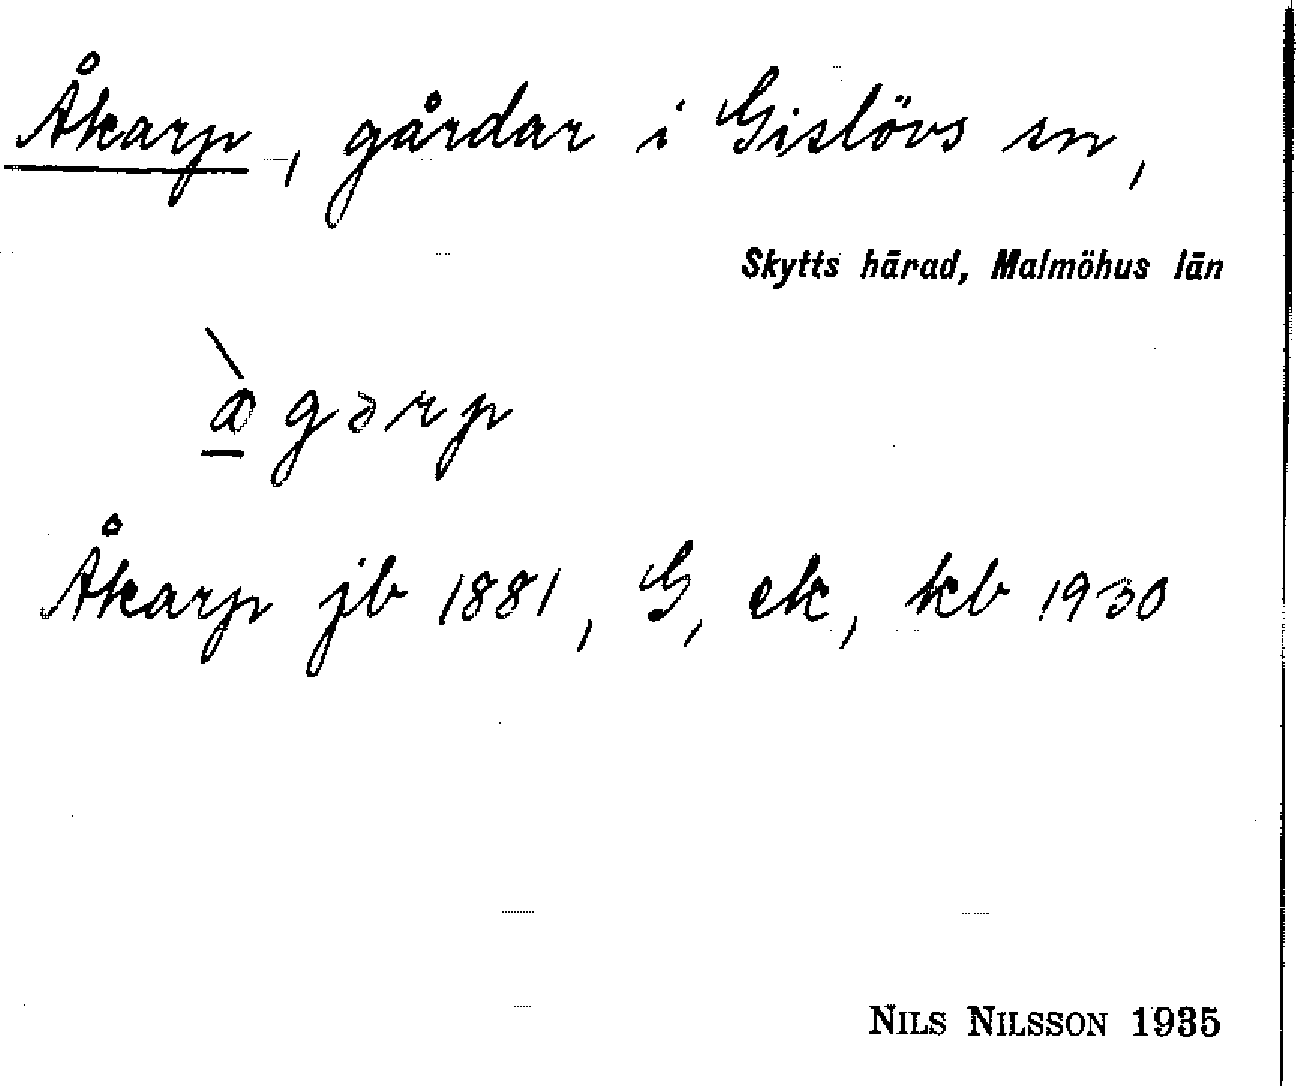 Åkarp, gårdar i Gislövs sn,
Skytts härad, Malmöhus län
à̱gərp
Åkarp jb 1881, G, ek, kb 1930
NILS NILSSON 1935